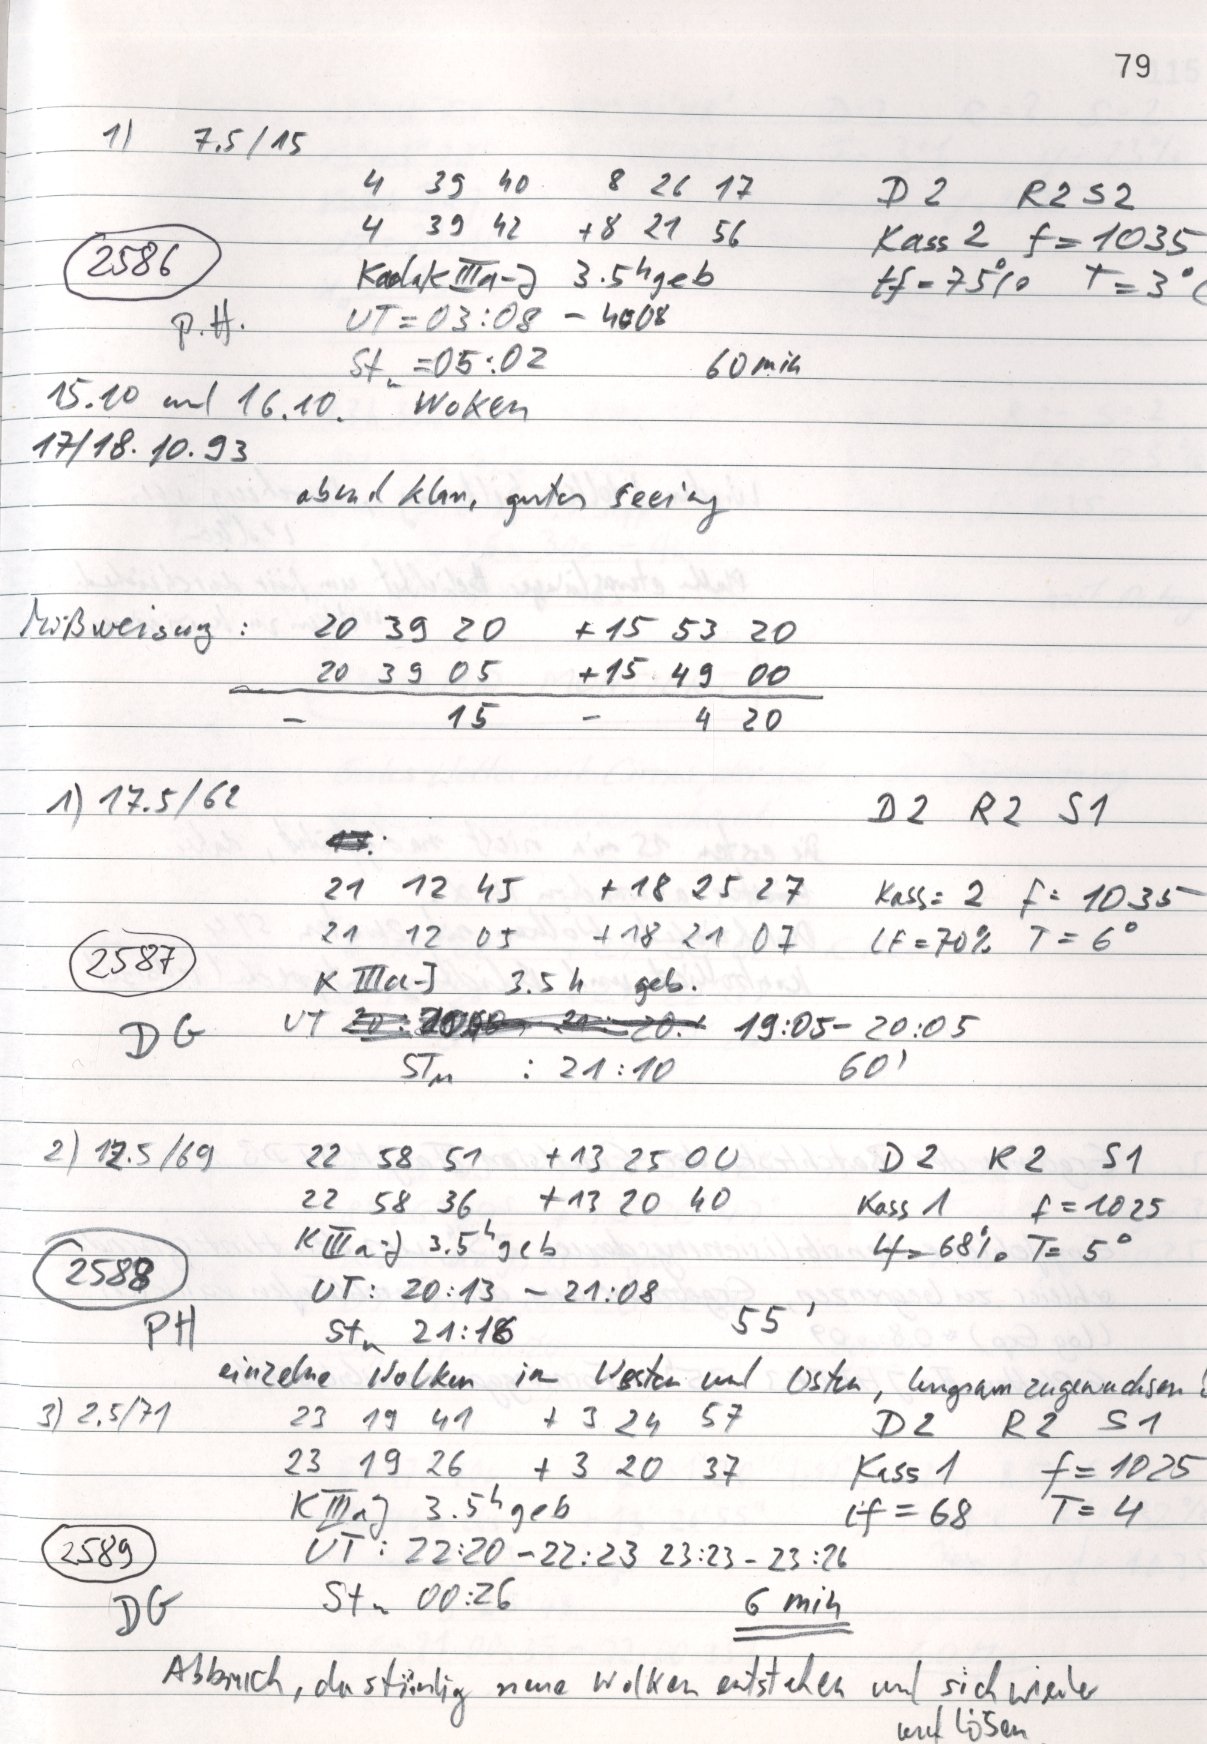 79
1) 7.5/15
4 39 40 8 26 17 D2 R2 S2
4 39 42 +8 21 56 Kass 2 f=1035
2586 Kodak IIIa-J 3.5h geb lf=75% T=3°C
P.H. UT=03:08 - 4:08
Stu =05:02 60 min
15.10 und 16.10. Woken
17/18.10.93
abend klar, gutes seeing
Mißweisung: 20 39 20 +15 53 20
20 39 05 +15 49 00
- 15 - 4 20
1) 17.5/62 D2 R2 S1
21 12 45 +18 25 27 Kass= 2 f= 1035
21 12 05 +18 21 07 LF=70% T=6°
2587 K IIIa-J 3.5 h geb.
DG UT 19:05-20:05
STu : 21:10 60'
2) 12.5/69 22 58 51 +13 25 00 D2 R2 S1
22 58 36 +13 20 40 Kass 1 f=1025
K IIIa-J 3.5h geb lf=68% T=5°
2588 UT: 20:13 - 21:08
PH Stu 21:16 55'
einzelne Wolken im Westen und Osten, langsam zugewachsen!
3) 2.5/71 23 19 41 +3 24 57 D2 R2 S1
23 19 26 +3 20 37 Kass 1 f=1025
K IIIaJ 3.5h geb lf=68 T=4
2589 UT: 22:20-22:23 23:23-23:26
DG Stu 00:26 6 min
Abbruch, da ständig neue Wolken entstehen und sich wieder
auflösen